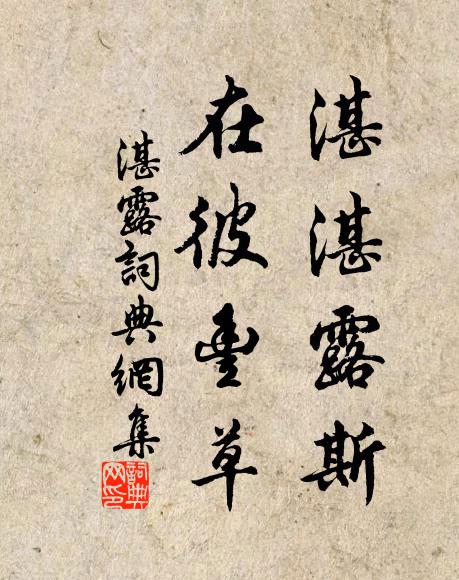 湛湛露斯
在彼豐草
湛露詞典網集
詞典網印